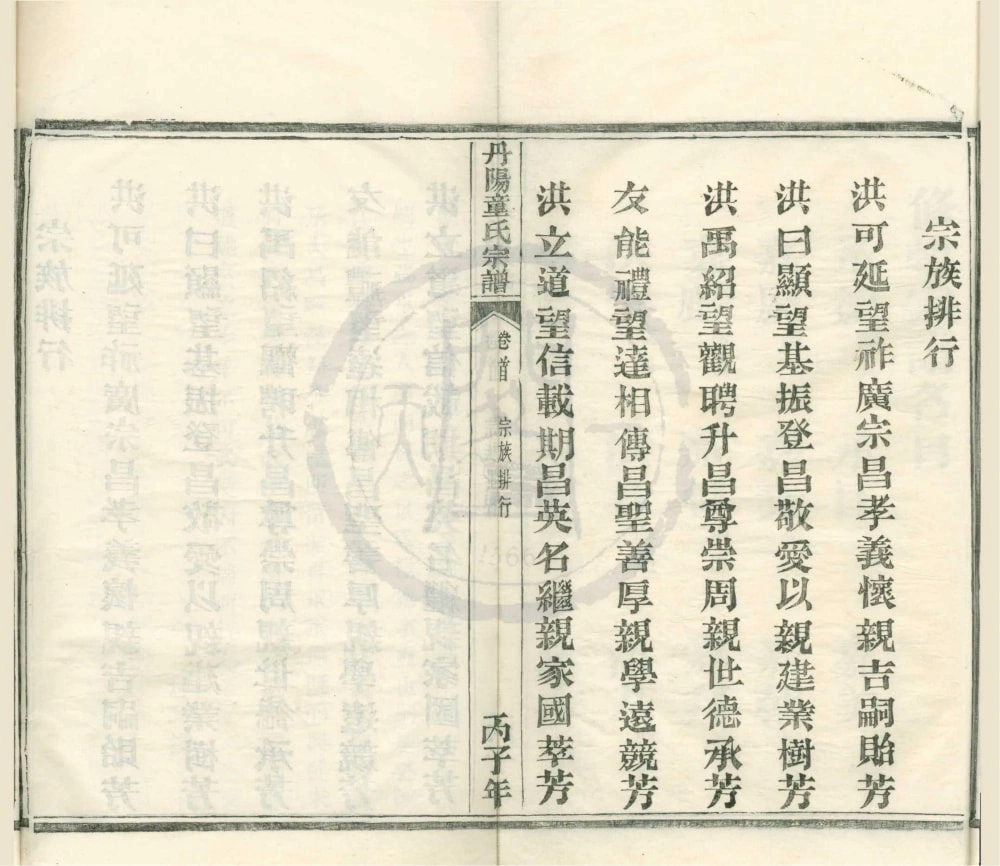 宗族排行
洪可延望祚廣宗昌孝義懷親吉嗣貽芳
洪曰顯望基振登昌敬愛以親建業樹芳
洪禹紹望觀聘升昌尊崇周親世德承芳
友能禮望達相傳昌聖善厚親學遠競芳
洪立道望信載期昌英名繼親家國萃芳
丹陽童氏宗譜
卷首
宗族排行
丙子年